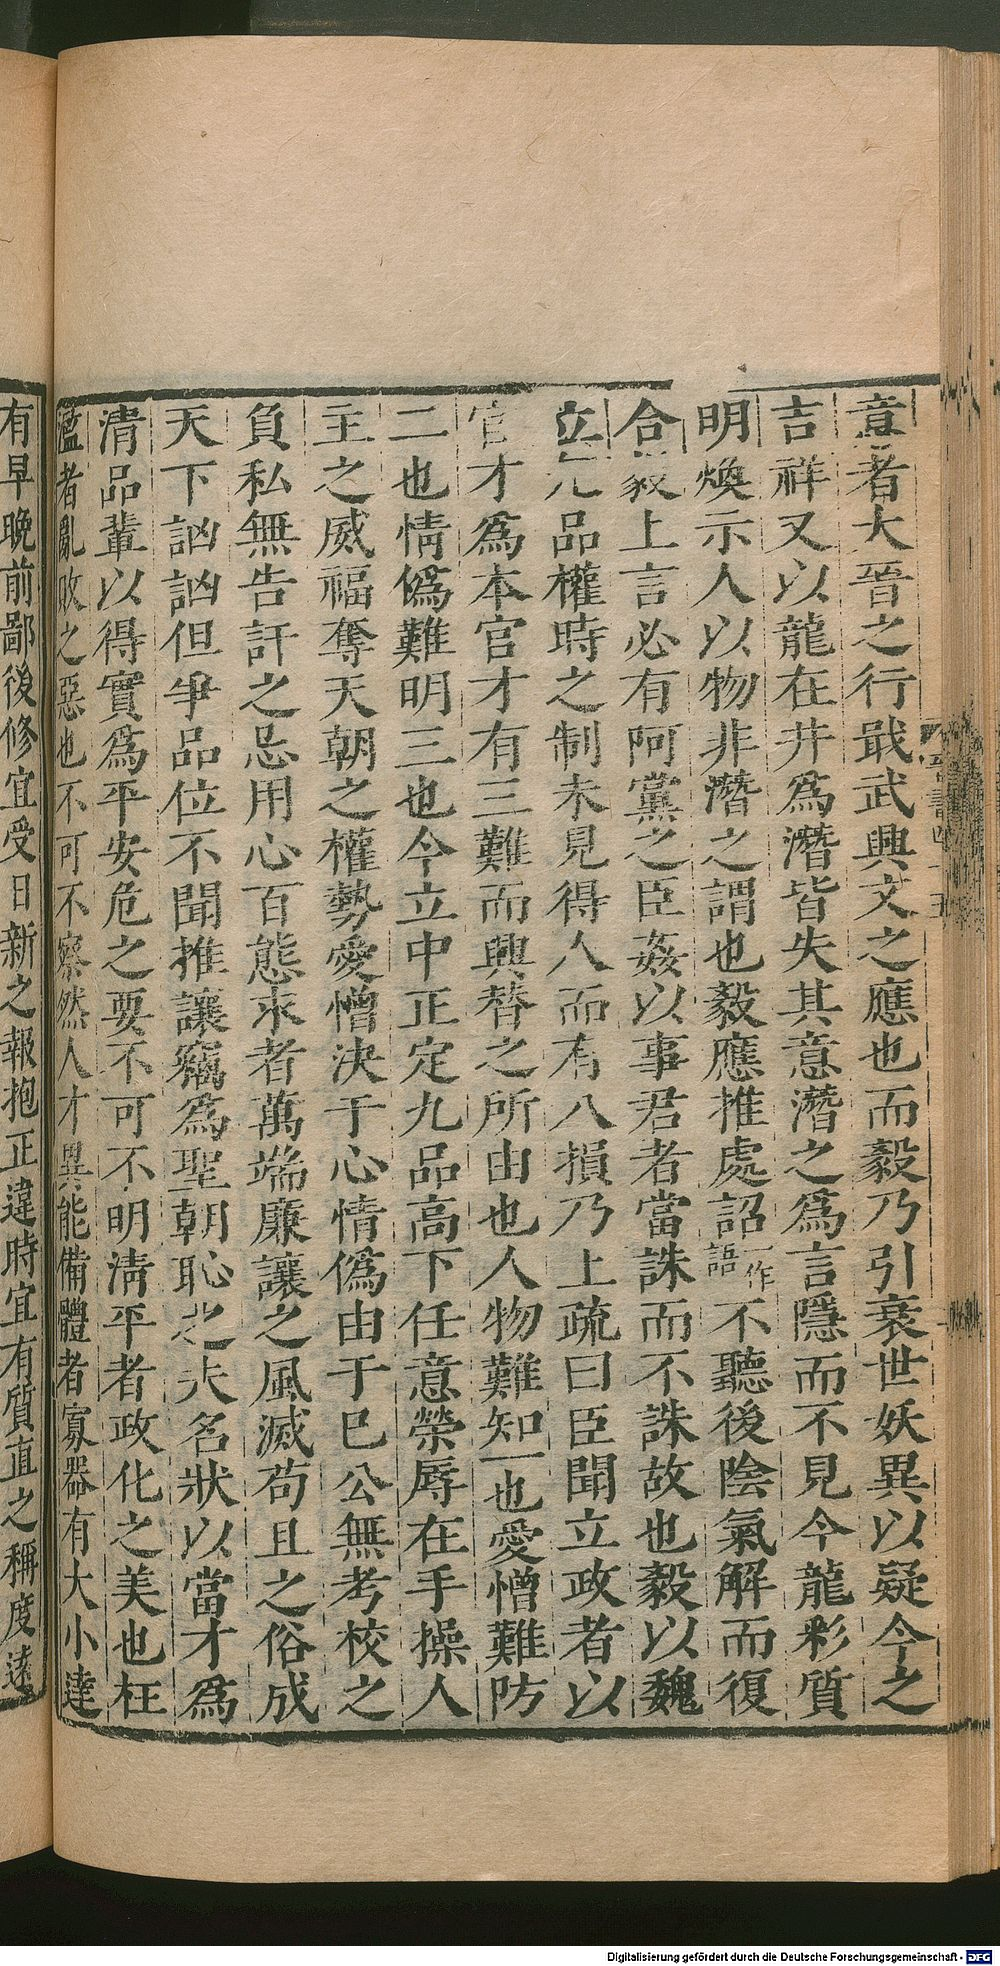 意者大晉之行戢武興文之應也而毅乃引衰世妖異以疑今之
吉祥又以龍在井為潛皆失其意潛之為言隱而不見今龍彩質
明煥示人以物非潛之謂也毅應推處詔一作語不聽後陰氣解而復
合毅上言必有阿黨之臣姦以事君者當誅而不誅故也毅以魏
立九品權時之制未見得人而有八損乃上疏曰臣聞立政者以
官才為本官才有三難而興替之所由也人物難知一也愛憎難防
二也情偽難明三也今立中正定九品高下任意榮辱在手操人
主之威福奪天朝之權勢愛憎決于心情偽由于已公無考校之
負私無告訐之忌用心百態求者萬端廉讓之風滅苟且之俗成
天下訩訩但爭品位不聞推讓竊為聖朝恥之夫名狀以當才為
清品輩以得實為平安危之要不可不明清平者政化之美也枉
濫者亂敗之惡也不可不察然人才異能備體者寡器有大小達
有早晚前鄙後修宜受日新之報抱正違時宜有質直之稱度遠
Digitalisierung gefördert durch die Deutsche Forschungsgemeinschaft - DFG